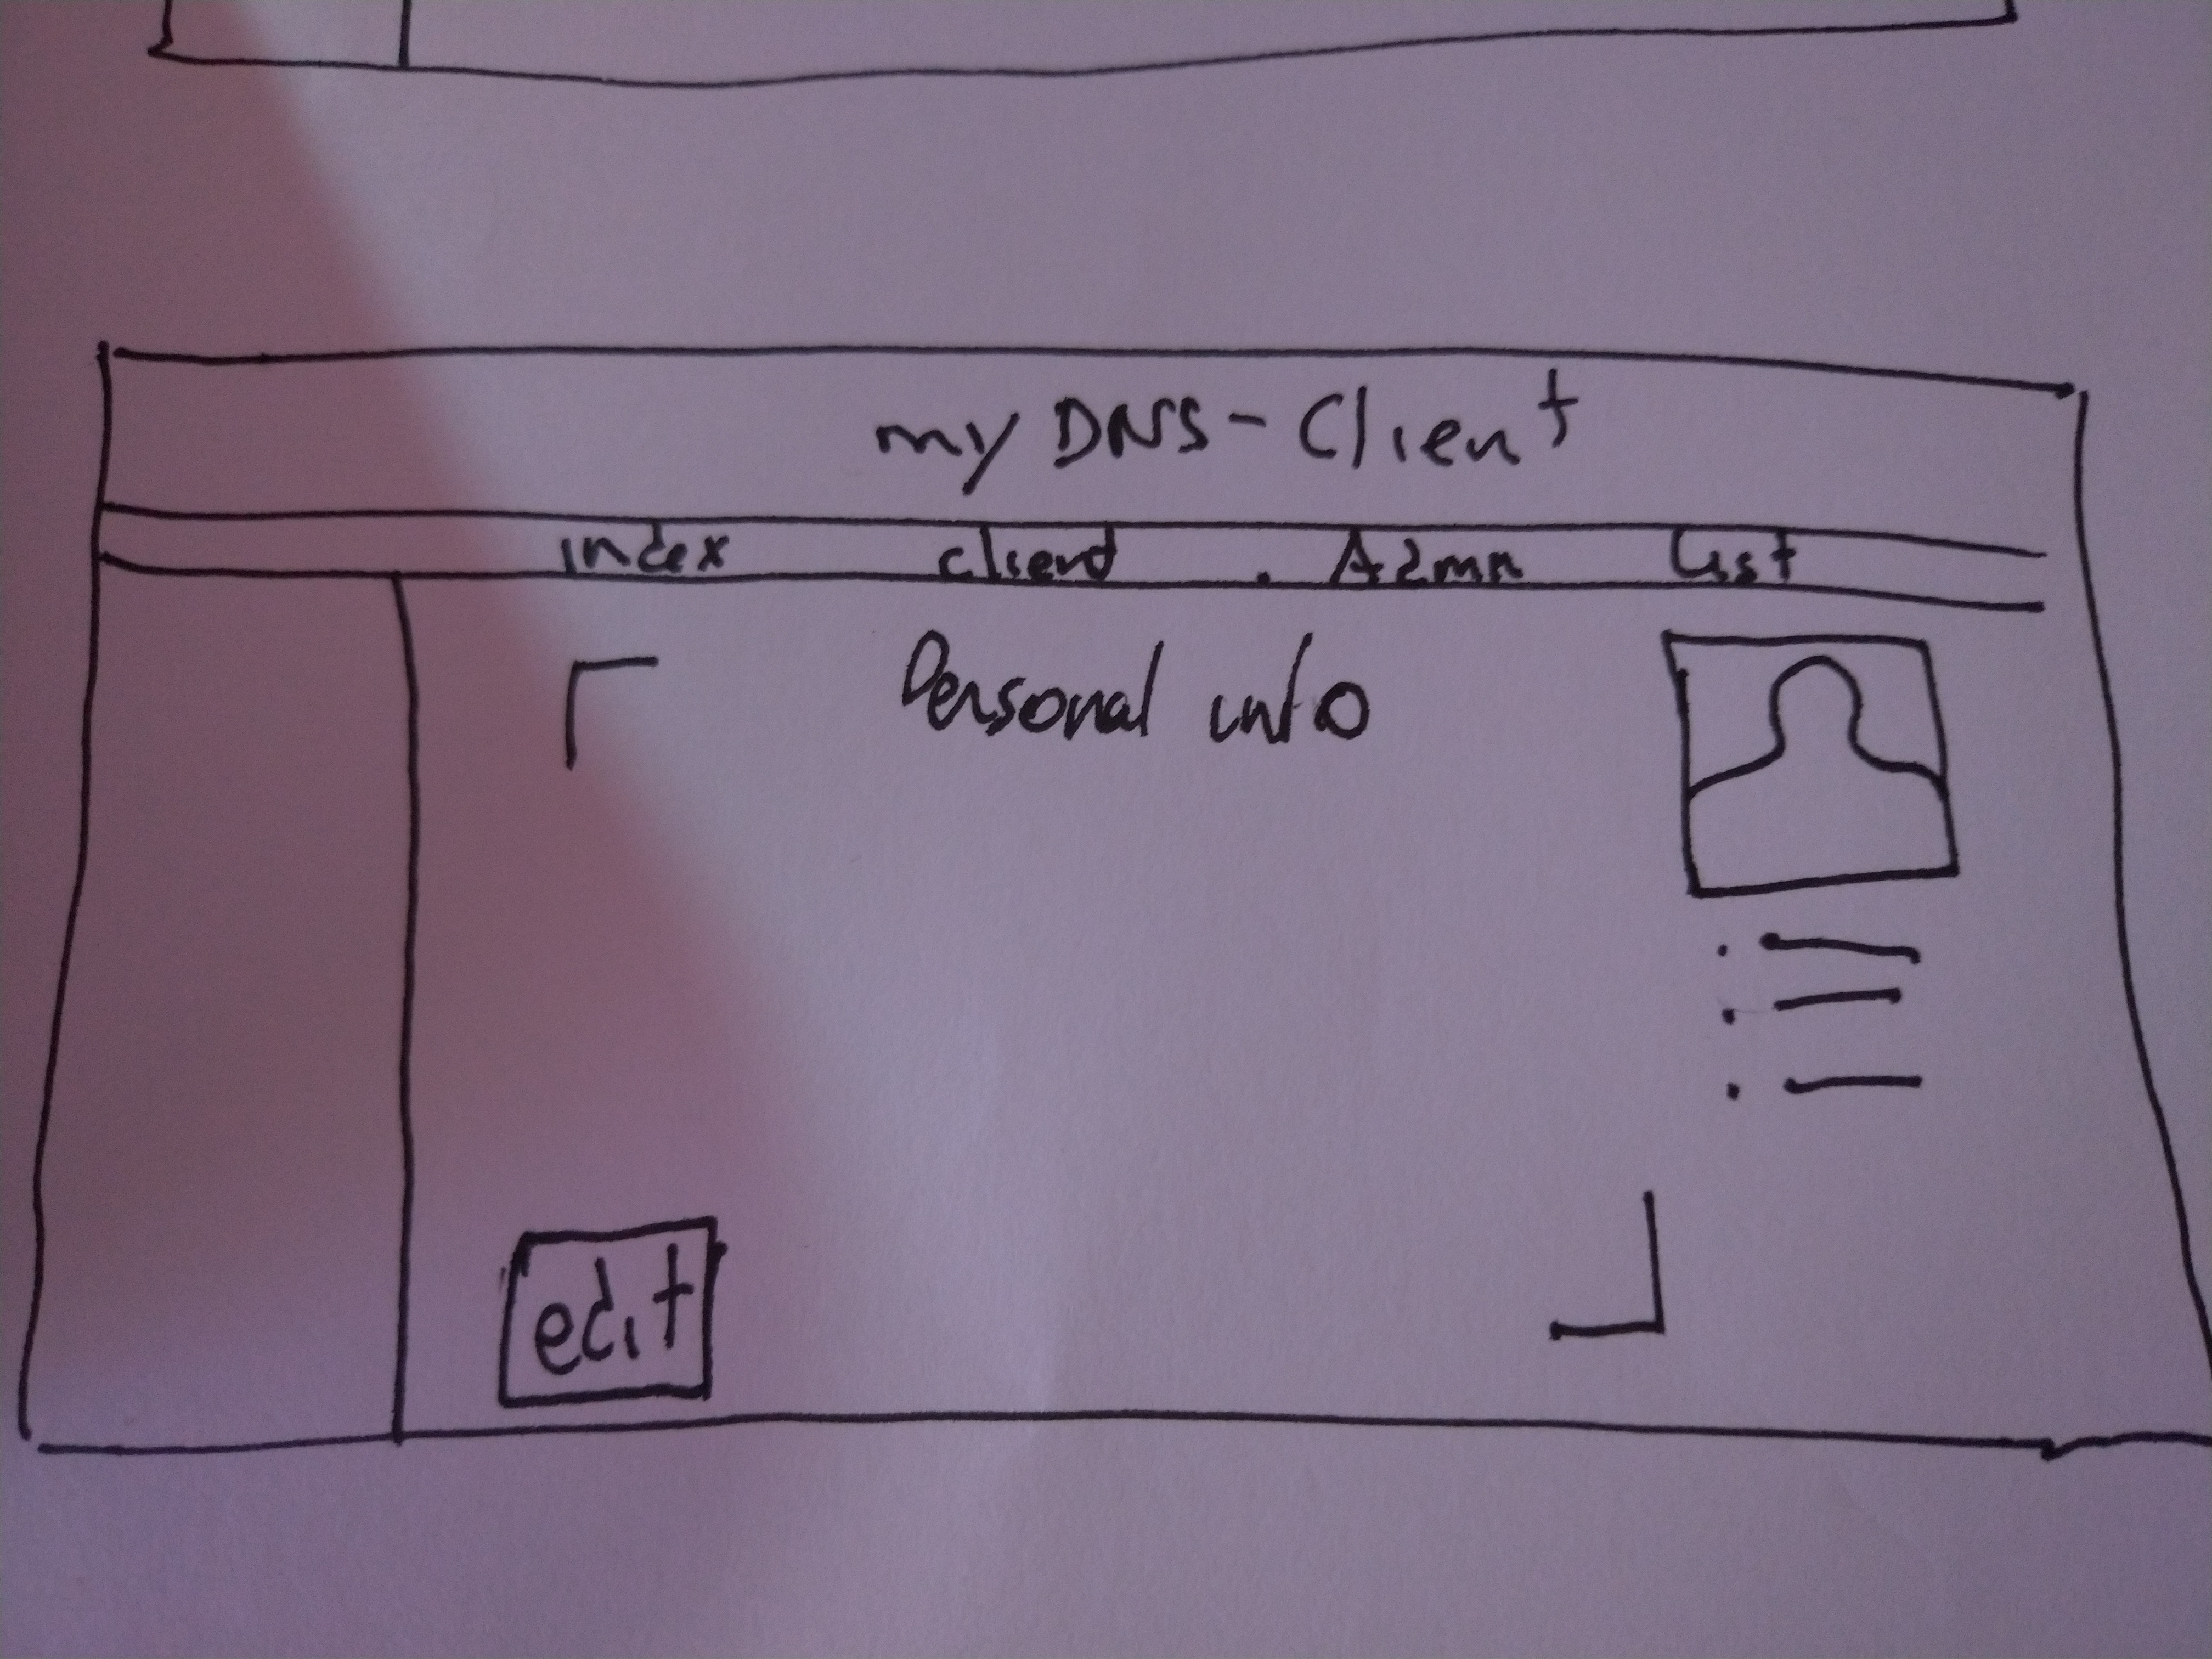 my DNS - Client
index client Admn List
Personal info
edit